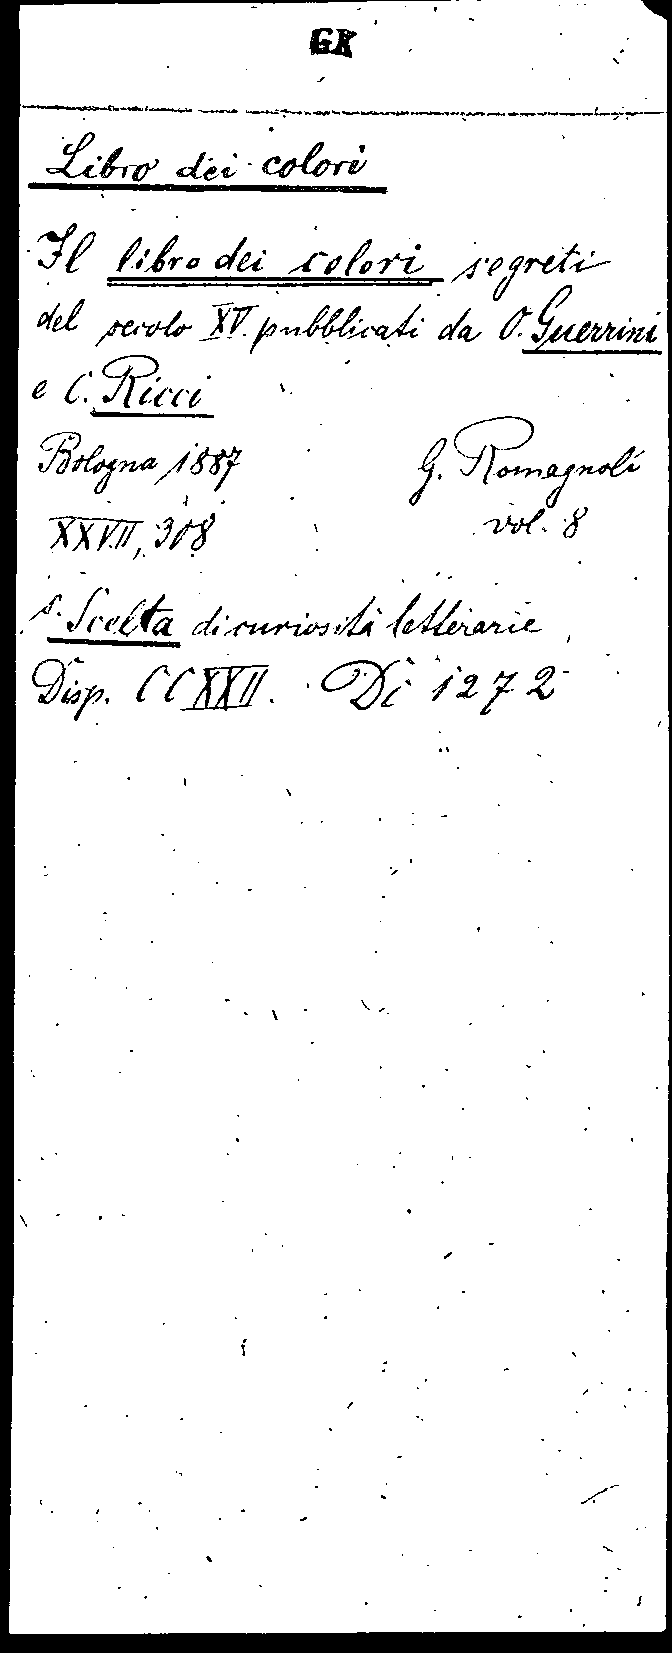 GK
Libro dei colori
Il libro dei colori segreti
del secolo XV. pubblicati da O. Guerrini
e C. Ricci
Bologna 1887 G. Romagnoli
XXVII, 308 vol. 8
s. Scelta di curiosità letterarie
Disp. CCXXII. Di 1272